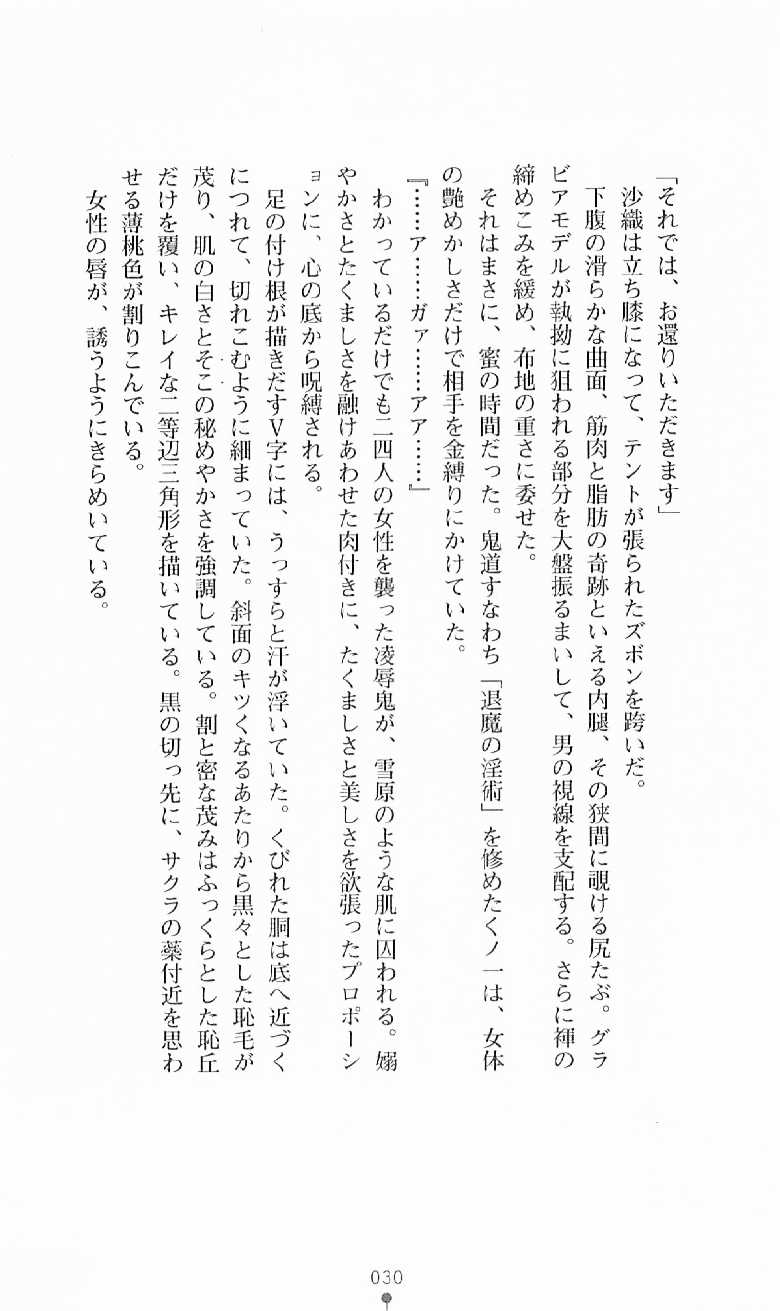 「それでは、お還りいただきます」
　沙織は立ち膝になって、テントが張られたズボンを跨いだ。
　下腹の滑らかな曲面、筋肉と脂肪の奇跡といえる内腿、その狭間に覗ける尻たぶ。グラ
ビアモデルが執拗に狙われる部分を大盤振るまいして、男の視線を支配する。さらに褌の
締めこみを緩め、布地の重さに委せた。
　それはまさに、蜜の時間だった。鬼道すなわち「退魔の淫術」を修めたくノ一は、女体
の艶めかしさだけで相手を金縛りにかけていた。
『……ア……ガァ……アア……』
　わかっているだけでも二四人の女性を襲った凌辱鬼が、雪原のような肌に囚われる。嫋
やかさとたくましさを融けあわせた肉付きに、たくましさと美しさを欲張ったプロポーシ
ョンに、心の底から呪縛される。
　足の付け根が描きだすV字には、うっすらと汗が浮いていた。くびれた胴は底へ近づく
につれて、切れこむように細まっていた。斜面のキツくなるあたりから黒々とした恥毛が
茂り、肌の白さとそこの秘めやかさを強調している。割と密な茂みはふっくらとした恥丘
だけを覆い、キレイな二等辺三角形を描いている。黒の切っ先に、サクラの蘂付近を思わ
せる薄桃色が割りこんでいる。
　女性の唇が、誘うようにきらめいている。
030